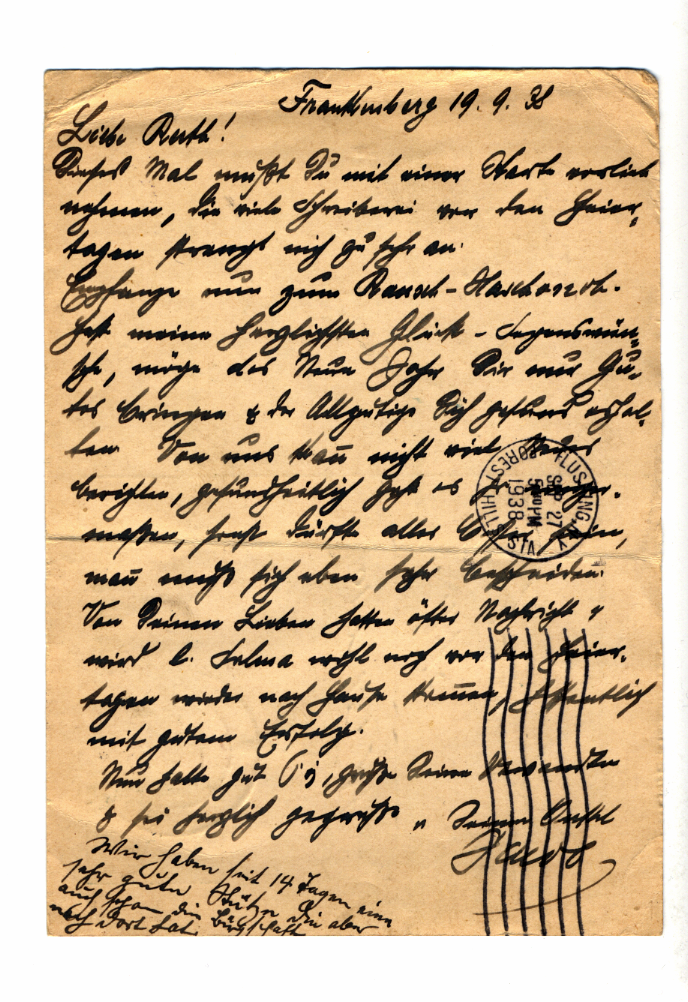 Frankenberg 19. 9. 38
Liebe Ruth!
Dieses Mal mußt Du mit einer Karte vorlieb
nehmen, die viele Schreiberei vor den Feier-
tagen strengt mich zu sehr an.
Empfange nun zum Rausch-Haschonoh-
fest meine herzlichsten Glück- Segenswün-
sche, möge das Neue Jahr Dir nur Gu-
tes bringen & der Allgütige Dich gesund erhal-
ten. Von uns kann nicht viel Neues
berichten, gesundheitlich geht es
maßen, sonst dürfte alles besser sein,
man muß sich eben sehr bescheiden.
Von Deinen Lieben hatten öfter Nachricht &
wird l. Selma wohl noch vor den Feier-
tagen wieder nach Hause kommen, hoffentlich
mit gutem Erfolg.
Nun halte gut, grüße Deine Verwandten
& sei herzlich gegrüßt v. Deinem Onkel
Wir haben seit 14 Tagen eine
sehr gute Stütze die aber
auch schon die Bürgschaft
nach dort hat.
FLUSHING, N.Y.
SEP 27
5 PM
1938
FOREST HILLS STA.